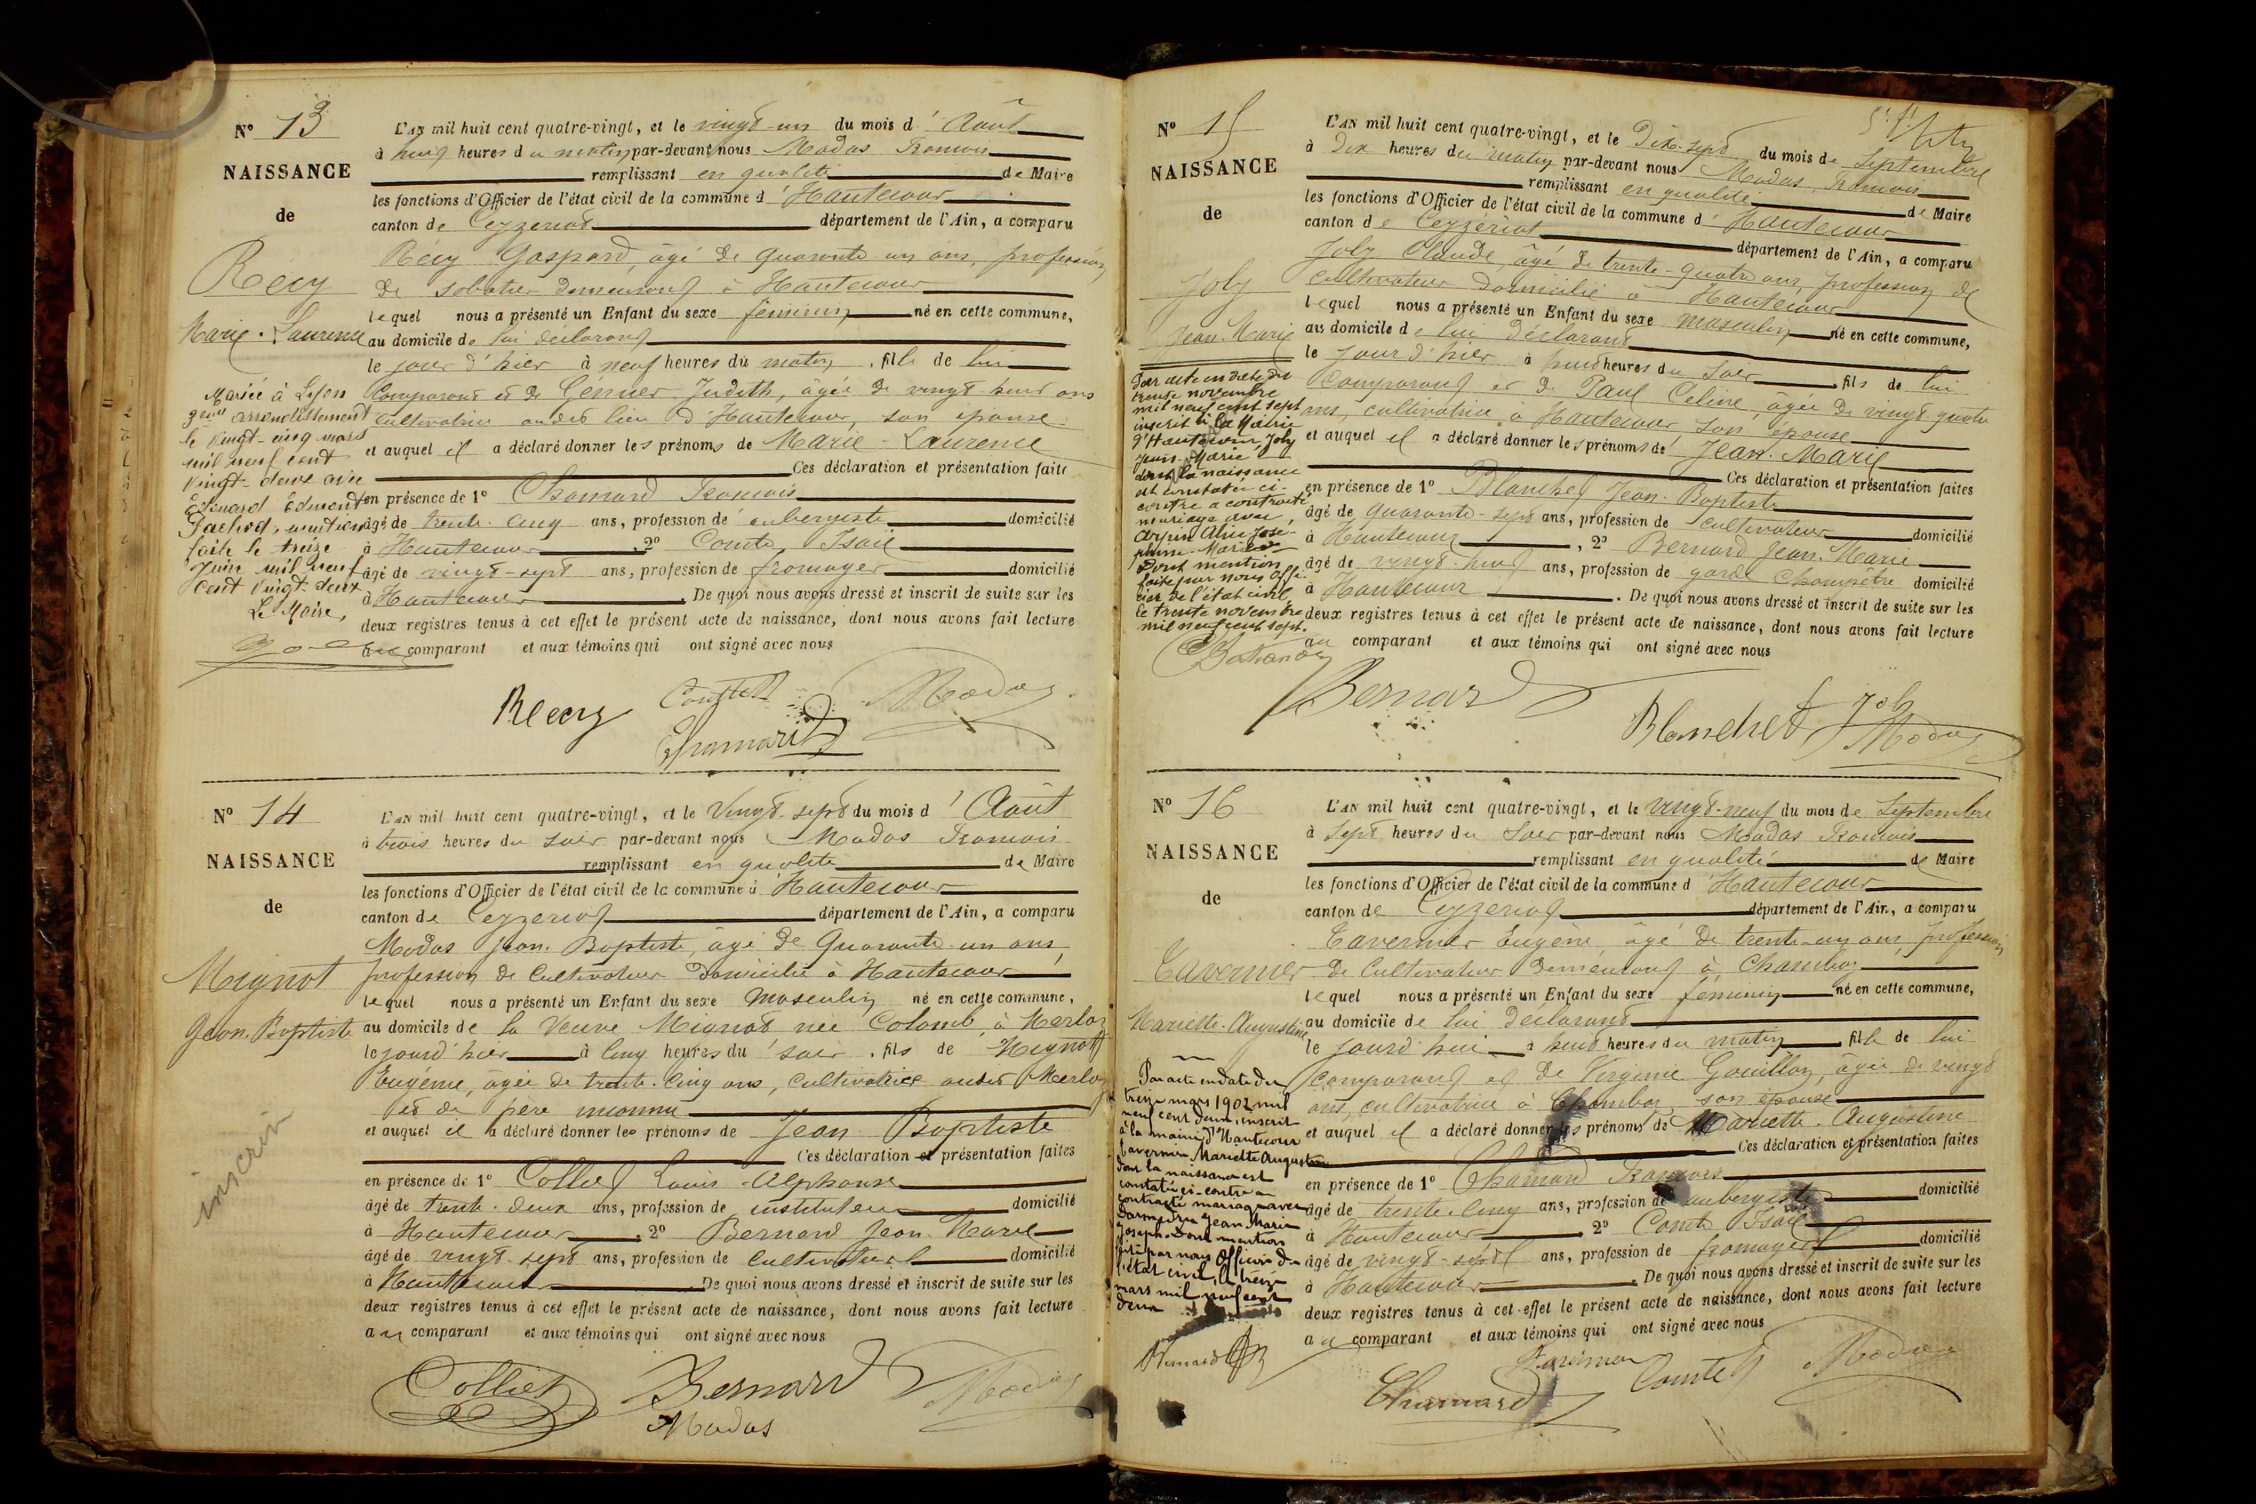 N° 13
NAISSANCE
de
Récy
Marie-Laurence
Mariée à Lyon
3eme arrondissement
le vingt-cinq mars
mil neuf cent
vingt-deux avec
Edouard Edmond
mention
faite le treize
Juin mil neuf
cent vingt-deux
Le Maire,
L'AN mil huit cent quatre-vingt, et le vingt-un du mois d'Août
à huit heures du matin par-devant nous Modas François
remplissant en qualité de Maire
les fonctions d'Officier de l'état civil de la commune d'Hautecour
canton de Ceyzériat département de l'Ain, a comparu
Récy Gaspard, âgé de quarante-un ans, profession
de sabotier demeurant à Hautecour
lequel nous a présenté un Enfant du sexe féminin né en cette commune,
au domicile de lui déclarant
le jour d'hier à neuf heures du matin, fille de lui
Comparant et de Judith, âgée de vingt-huit ans
cultivatrice audit lieu d'Hautecour, son épouse
et auquel il a déclaré donner les prénoms de Marie-Laurence
Ces déclaration et présentation faites
en présence de 1° Chamard François
âgé de trente-cinq ans, profession de aubergiste domicilié
à Hautecour, 2° Comte, Isaïe
âgé de vingt-sept ans, profession de fromager domicilié
à Hautecour. De quoi nous avons dressé et inscrit de suite sur les
deux registres tenus à cet effet le présent acte de naissance, dont nous avons fait lecture
au comparant et aux témoins qui ont signé avec nous
Récy Comte Modas
Chamard
N° 14
NAISSANCE
de
Mignot
Jean-Baptiste
inscrin
L'AN mil huit cent quatre-vingt, et le Vingt-sept du mois d'Août
à trois heures du soir par-devant nous Modas François
remplissant en qualité de Maire
les fonctions d'Officier de l'état civil de la commune d'Hautecour
canton de Ceyzériat département de l'Ain, a comparu
Modas Jean-Baptiste, âgé de Quarante-un ans,
profession de Cultivateur domicilié à Hautecour
lequel nous a présenté un Enfant du sexe masculin né en cette commune,
au domicile de la Veuve Mignot née Colomb, à Merloz
le jour d'hier à cinq heures du soir, fils de Mignot
Eugénie, âgée de trente-cinq ans, cultivatrice audit Merloz
et de père inconnu
et auquel il a déclaré donner les prénoms de Jean Baptiste
Ces déclaration et présentation faites
en présence de 1° Colliet Louis-Alphonse
âgé de trente-deux ans, profession de instituteur domicilié
à Hautecour, 2° Bernard Jean-Marie
âgé de vingt-sept ans, profession de Cultivateur domicilié
à Hautecour De quoi nous avons dressé et inscrit de suite sur les
deux registres tenus à cet effet le présent acte de naissance, dont nous avons fait lecture
au comparant et aux témoins qui ont signé avec nous
Colliet Bernard Modas
Modas
N° 15
NAISSANCE
de
Joly
Jean-Marie
Par acte en date du
trente novembre
mil neuf cent sept
inscrit à la Mairie
d'Hautecour Joly
Jean-Marie
dont la naissance
est constatée ci-
contre a contracté
mariage avec
José-
phine-Marie
Dont mention
faite par nous offi-
cier de l'état civil
le trente novembre
mil neuf cent sept.
L'AN mil huit cent quatre-vingt, et le Dix-sept du mois de Septembre
à Dix heures du matin par-devant nous Modas François
remplissant en qualité de Maire
les fonctions d'Officier de l'état civil de la commune d'Hautecour
canton de Ceyzériat département de l'Ain, a comparu
Joly Claude, âgé de trente-quatre ans, profession de
cultivateur domicilié à Hautecour
lequel nous a présenté un Enfant du sexe masculin né en cette commune,
au domicile de lui déclarant
le jour d'hier à huit heures du soir fils de lui
Comparant et de Paul Céline, âgée de vingt-quatre
ans, cultivatrice à Hautecour son épouse
et auquel il a déclaré donner les prénoms de Jean-Marie
Ces déclaration et présentation faites
en présence de 1° Blanchet Jean-Baptiste
âgé de quarante-sept ans, profession de cultivateur domicilié
à Hautecour, 2° Bernard Jean-Marie
âgé de vingt-huit ans, profession de garde Champêtre domicilié
à Hautecour. De quoi nous avons dressé et inscrit de suite sur les
deux registres tenus à cet effet le présent acte de naissance, dont nous avons fait lecture
au comparant et aux témoins qui ont signé avec nous
Bernard Blanchet Joly
Modas
N° 16
NAISSANCE
de
Tavernier
Mariette-Augustine
Par acte en date du
treize mars 1902 mil
neuf cent deux, inscrit
à la mairie d'Hautecour
Tavernier Mariette Augustine
dont la naissance est
constatée ci-contre a
contracté mariage avec
Jean Marie
Joseph. Dont mention
faite par nous Officier de
l'état civil, le treize
mars mil neuf cent
deux
L'AN mil huit cent quatre-vingt, et le vingt-neuf du mois de Septembre
à sept heures du soir par-devant nous Modas François
remplissant en qualité de Maire
les fonctions d'Officier de l'état civil de la commune d'Hautecour
canton de Ceyzériat département de l'Ain, a comparu
Tavernier Eugène âgé de trente-un ans, profession
de Cultivateur demeurant à Chambor
lequel nous a présenté un Enfant du sexe féminin né en cette commune,
au domicile de lui déclarant
le jourd'hui à huit heures du matin, fille de lui
comparant et de Virginie Gouillon, âgée de vingt
ans, cultivatrice à Chambor son épouse
et auquel il a déclaré donner les prénoms de Mariette-Augustine
Ces déclaration et présentation faites
en présence de 1° Chamard François
âgé de trente-cinq ans, profession de aubergiste domicilié
à Hautecour 2° Comte Isaïe
âgé de vingt-sept ans, profession de fromager domicilié
à Hautecour. De quoi nous avons dressé et inscrit de suite sur les
deux registres tenus à cet effet le présent acte de naissance, dont nous avons fait lecture
au comparant et aux témoins qui ont signé avec nous
Tavernier Comte Modas
Chamard